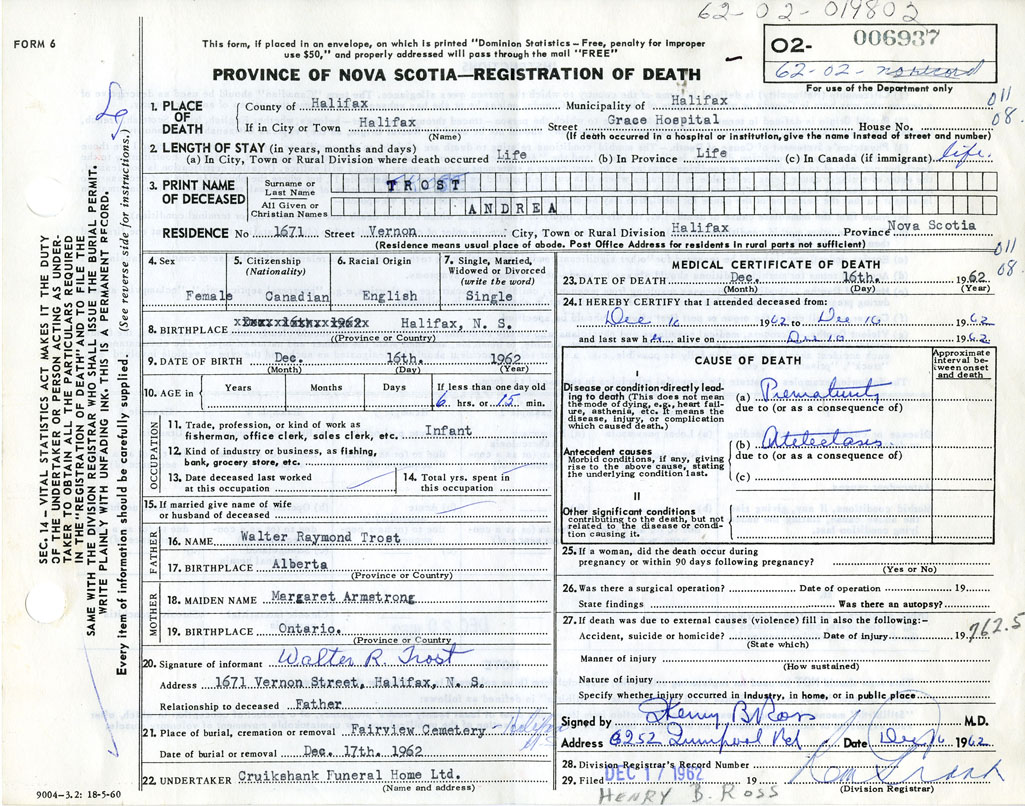 62-02-019802
FORM 6
This form, if placed in an envelope, on which is printed "Dominion Statistics – Free, penalty for improper
use $50," and properly addressed will pass through the mail "FREE"
O2- 006937
62-02-
For use of the Department only
PROVINCE OF NOVA SCOTIA—REGISTRATION OF DEATH
011
08.
1. PLACE OF DEATH
County of Halifax Municipality of Halifax
If in City or Town Halifax Street Grace Hospital House No.
(Name) (If death occurred in a hospital or institution, give the name instead of street and number)
2. LENGTH OF STAY (in years, months and days)
(a) In City, Town or Rural Division where death occurred Life (b) In Province Life (c) In Canada (if immigrant) life.
3. PRINT NAME OF DECEASED
Surname or Last Name TROST
All Given or Christian Names ANDREA
RESIDENCE No 1671 Street Vernon City, Town or Rural Division Halifax Province Nova Scotia
(Residence means usual place of abode. Post Office Address for residents in rural parts not sufficient)
011
08
4. Sex
Female
5. Citizenship
(Nationality)
Canadian
6. Racial Origin
English
7. Single, Married,
Widowed or Divorced
(write the word)
Single
8. BIRTHPLACE Halifax, N. S.
(Province or Country)
9. DATE OF BIRTH Dec. 16th. 1962
(Month) (Day) (Year)
10. AGE in
Years Months Days If less than one day old
6 hrs. or 15 min.
OCCUPATION
11. Trade, profession, or kind of work as
fisherman, office clerk, sales clerk, etc. Infant
12. Kind of industry or business, as fishing,
bank, grocery store, etc.
13. Date deceased last worked
at this occupation
14. Total yrs. spent in
this occupation
15. If married give name of wife
or husband of deceased
FATHER
16. NAME Walter Raymond Trost
17. BIRTHPLACE Alberta
(Province or Country)
MOTHER
18. MAIDEN NAME Margaret Armstrong
19. BIRTHPLACE Ontario.
(Province or Country
20. Signature of informant Walter R. Trost
Address 1671 Vernon Street, Halifax, N. S.
Relationship to deceased Father
21. Place of burial, cremation or removal Fairview Cemetery - Halifax
Date of burial or removal Dec. 17th. 1962
22. UNDERTAKER Cruikshank Funeral Home Ltd.
(Name and address)
MEDICAL CERTIFICATE OF DEATH
23. DATE OF DEATH Dec. 16th. 1962
(Month) (Day) (Year)
24. I HEREBY CERTIFY that I attended deceased from:
Dec 16 1962 to Dec 16 1962
and last saw her alive on Dec 16 1962
CAUSE OF DEATH
Approximate
interval be-
tween onset
and death
I
Disease or condition directly lead-
ing to death (This does not mean
the mode of dying, e.g., heart fail-
ure, asthenia, etc. It means the
disease, injury, or complication
which caused death.)
(a) Prematurity
due to (or as a consequence of)
Antecedent causes
Morbid conditions, if any, giving
rise to the above cause, stating
the underlying condition last.
(b) Atelectasis
due to (or as a consequence of)
(c)
II
Other significant conditions
contributing to the death, but not
related to the disease or condi-
tion causing it.
25. If a woman, did the death occur during
pregnancy or within 90 days following pregnancy?
(Yes or No)
26. Was there a surgical operation? Date of operation 19
State findings Was there an autopsy?
27. If death was due to external causes (violence) fill in also the following:-
Accident, suicide or homicide? Date of injury 19
762.5
(State which)
Manner of injury
(How sustained)
Nature of injury
Specify whether injury occurred in Industry, in home, or in public place
Signed by Henry B Ross M.D.
Address 6252 Quinpool Rd Date Dec 16 1962
28. Division Registrar's Record Number
29. Filed DEC 17 1962 19
(Division Registrar)
HENRY B. ROSS
SEC. 14 – VITAL STATISTICS ACT MAKES IT THE DUTY
OF THE UNDERTAKER OR PERSON ACTING AS UNDER-
TAKER TO OBTAIN ALL THE PARTICULARS REQUIRED
IN THE "REGISTRATION OF DEATH" AND TO FILE THE
SAME WITH THE DIVISION REGISTRAR WHO SHALL ISSUE THE BURIAL PERMIT.
WRITE PLAINLY WITH UNFADING INK. THIS IS A PERMANENT RECORD.
Every item of information should be carefully supplied. (See reverse side for instructions.)
9004-3.2: 18-5-60